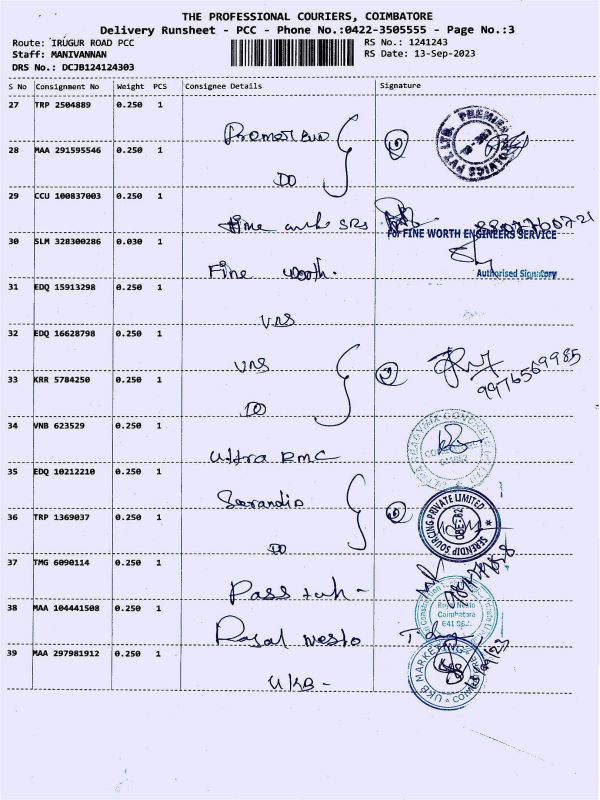 THE PROFESSIONAL COURIERS, COIMBATORE
Delivery Runsheet - PCC - Phone No.:0422-3505555 - Page No.:3
Route: IRUGUR ROAD PCC
RS No.: 1241243
Staff: MANIVANNAN
RS Date: 13-Sep-2023
DRS No.: DCJB124124303
S No Consignment No Weight PCS Consignee Details Signature
27 TRP 2504889 0.250 1
28 MAA 291595546 0.250 1
DO
29 CCU 100837003 0.250 1
30 SLM 328300286 0.030 1
For FINE WORTH ENGINEERS SERVICE
Fine worth.
Authorised Signatory
31 EDQ 15913298 0.250 1
VNS
32 EDQ 16628798 0.250 1
VNS
33 KRR 5784250 0.250 1
9976569985
DO
34 VNB 623529 0.250 1
Ultra RMC
35 EDQ 10212210 0.250 1
SERENDIP SOURCING PRIVATE LIMITED
36 TRP 1369037 0.250 1
DO
37 TMG 6090114 0.250 1
38 MAA 104441508 0.250 1
Coimbatore
641 062.
39 MAA 297981912 0.250 1
UKB MARKETING
UKB-